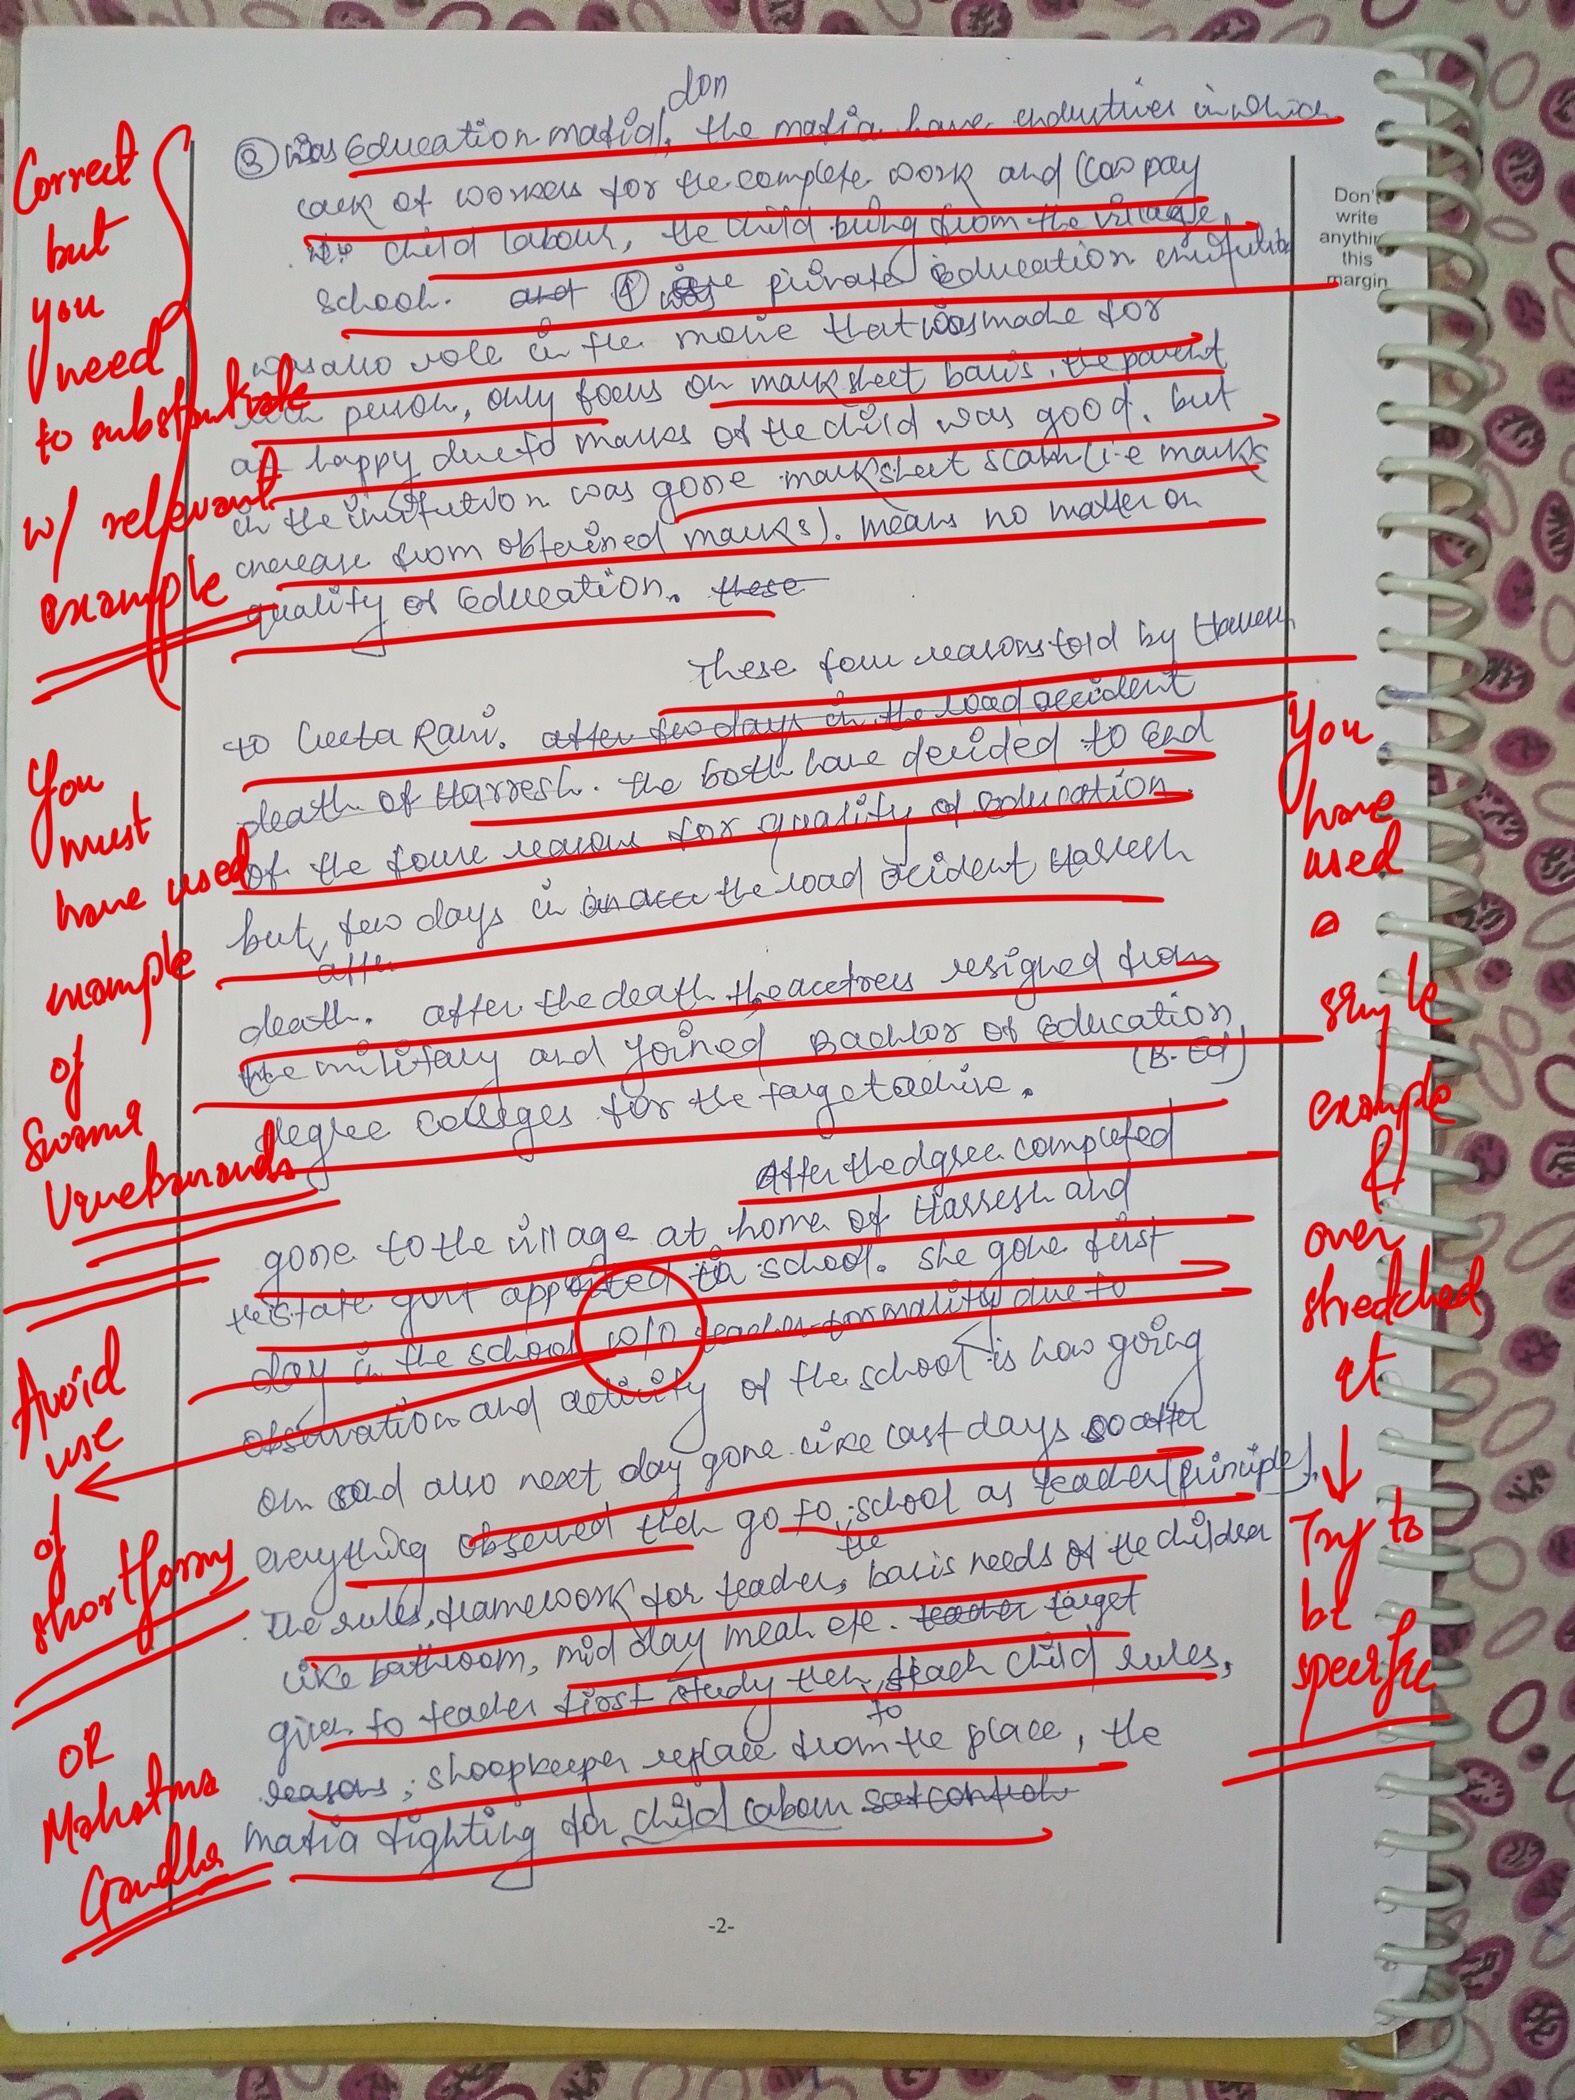 don
③ was Education mafia, the mafia have industries in which
lack of workers for the complete work and low pay
child labour, the child being from the village
school. and ④ was private Education
was also role in the movie that was made for
person, only focus on marksheet basis. the parent
are happy due to marks of the child was good. but
in the institution was gone marksheet scam (i.e marks
increase from obtained marks). means no matter on
quality of Education. these
These four reasons told by Harresh
to Geeta Rani. after two days in the road accident
death of Harresh. the both have decided to end
of the four reasons for quality of education.
but, few days in the road acident Harresh
after
death. after the death, the acctress resigned from
the military and joined Bachlor of Education
(B.Ed)
degree colleges for the target achive.
After the dgree completed
gone to the village at home of Harresh and
the state govt appointed in school. she gone first
day in the school w/o teacher formality due to
observation and activity of the school is how going
on and also next day gone like last days so after
everything observed then go to school as teacher (principle).
the
The rules, framework for teacher, basis needs of the children
like bathroom, mid day meal etc. teacher target
given to teacher first study then teach child rules,
to
reasons; shoopkeeper replace from the place, the
mafia fighting for child labour
-2-
Don't
write
anything
this
margin
Correct
but
you
need
to substantiate
w/ relevant
example
You
must
have used
example
of
Swami
Vivekananda
Avoid
use
of
shortforms
OR
Mahatma
Gandhi
You
have
used
a
single
example
&
over
stretched
it
Try to
be
specific